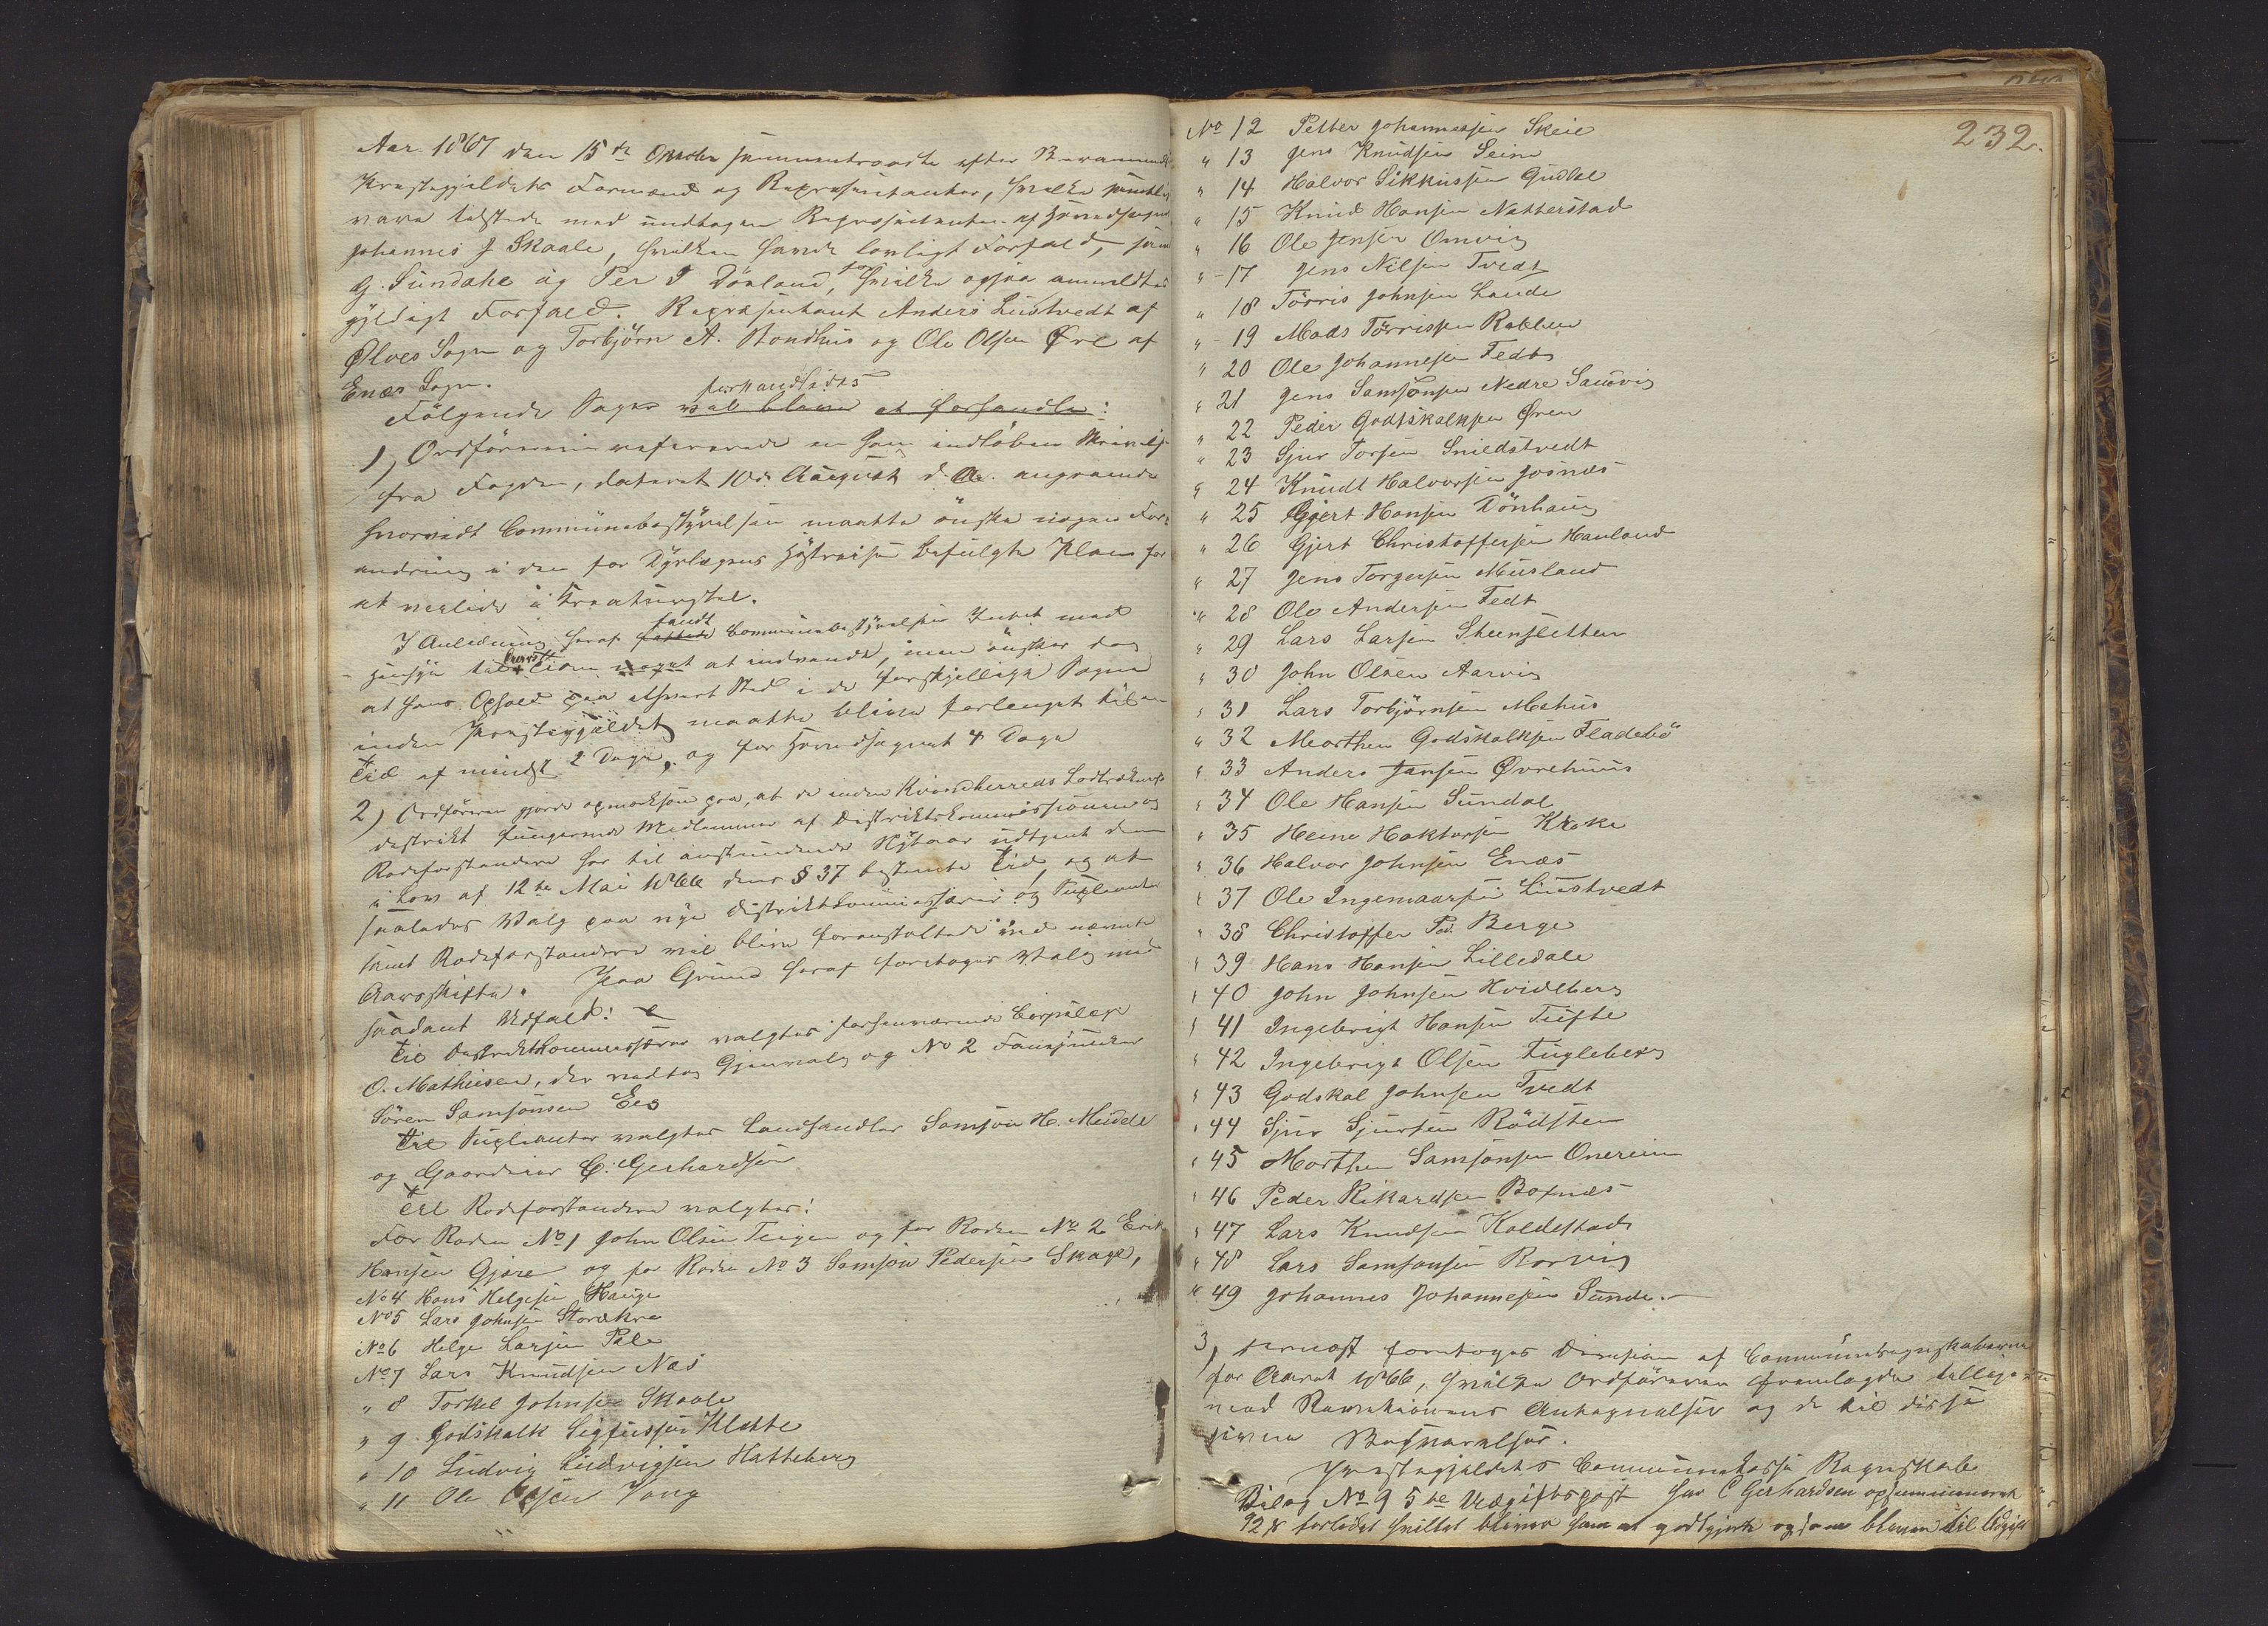 Aar 1867 den 15de October sammentraadte efter Berammelse
Præstegjældets Formænd og Repræsentanter, hvilke samtlige
vare tilstede med undtagen Repræsentanten af Hovedsognet
Johannes J Skaale, hvilken havde lovligt Forfald, samt
G. Sundahe og Per J Dönland, for hvilke ogsaa anmeldtes
gyldigt Forfald. Repræsentant Anders Lustvedt af
Ølves Sogn og Torbjörn A. Bondhus og Ole Olsen Øre af
Enæs Sogn.
Fölgende Sager forhandledes
vil blive at forhandle:
1, Ordföreren refererede en ham indlöben Skrivelse
fra Fogden, dateret 10de August d. A. angaaende
hvorvidt Communebestyrelsen maatte önske nogen For-
andring i den for Dyrlægens Höstreise befulgte Plan for
at veilede i Kreaturstel.
I Anledning heraf fandt Communebestyrelsen Intet med
Hensyn til Turen noget at indvende, men önsker dog
at hans Ophold paa ethvert Sted i de forskjellige Sogne
inden Præstegjældet maatte blive forlenget til en
Tid af mindst 2 Dage, og for Hovedsognet 4 Dage
2) Ordföreren gjorde opmærksom paa, at de inden Kvindherreds Lodtræknings
distrikt fungerende Medlemmer af Distriktskommissionen og
Rodeforstandere har til anstundende Nytaar udtjent den
i Lov af 12te Mai 1866 dens § 37 bestemte Tid, og at
saaledes Valg paa nye Distriktskommissærer og Suplianter
samt Rodeforstandere vil blive foranstaltede ved nævnte
Aarsskifte. Paa Grund heraf foretoges Valg med
saadant Udfald:
Til Distriktskommissærer valgtes forhenværende Corporal
O. Mathiesen, der vedtog Gjenvalg og No 2 Fanejunker
Sören Samsonsen Ees
Til Suplianter valgtes Landhandler Samson H. Meidell
og Gaardeier C. Gerhardsen
Til Rodeforstandere valgtes:
For Roden No 1 John Olsen Teigen og for Roden No 2 Erik
Hansen Gjøre og for Roden No 3 Samson Pedersen Skage,
No 4 Hans Helgesen Hauge
No 5 Lars Johnsen Storækre
No 6 Helge Larsen Pile
No 7 Lars Knudsen Næs
" 8 Torkel Johnsen Skaale
" 9 Godskalk Sigfussen Klette
" 10 Ludvig Ludvigsen Hatteberg
" 11 Ole Olsen Vang
232.
No 12 Petter Johannessen Skeie
" 13 Jens Knudsen Seim
" 14 Halvor Sikkussen Guddal
" 15 Knud Hansen Natterstad
" 16 Ole Jensen Omvig
" 17 Jens Nilsen Tvedt
" 18 Törris Johnsen Lande
" 19 Mads Törrissen Rabben
" 20 Ole Johannesen Fedt
" 21 Jens Samsonsen Nedre Sauvig
" 22 Peder Godtskalksen Øren
" 23 Sjur Torsen Snieldstvedt
" 24 Knudt Halvorsen Josnæs
" 25 Gjert Hansen Dönhaug
" 26 Gjert Christoffersen Hauland
" 27 Jens Torgersen Musland
" 28 Ole Andersen Fedt
" 29 Lars Larsen Steensletten
" 30 John Olsen Aarvig
" 31 Lars Torbjörnsen Mehus
" 32 Morthen Godskalksen Fladebö
" 33 Anders Jansen Øvrehuus
" 34 Ole Hansen Sundal
" 35 Heine Haktorsen Kroke
" 36 Halvor Johnsen Enæs
" 37 Ole Ingemaarsen Lustvedt
" 38 Christoffer Ped. Berge
" 39 Hans Hansen Lilledale
" 40 John Johnsen Hvidberg
" 41 Ingebrigt Hansen Tufte
" 42 Ingebrigt Olsen Fugleberg
" 43 Godskal Johnsen Tvedt
" 44 Sjur Sjursen Rödsten
" 45 Morthen Samsonsen Onereim
" 46 Peder Rikardsen Boxnæs
" 47 Lars Knudsen Koldestad
" 48 Lars Samsonsen Rorvig
" 49 Johannes Johannesen Sunde.
3, Dernæst foretoges Decision af Communeregnskaberne
for Aaret 1866, hvilke Ordföreren fremlagde tillige
med Revisionens Antegnelser og de til disse
givne Besvarelser.
Præstegjældets Communekasse Regnskab
Bilag No 9 5te Udgiftspost har C Gerhardsen opsummeret
92 s forlidet hvilket bliver ham at godtgjøre og som bliver til Udgift